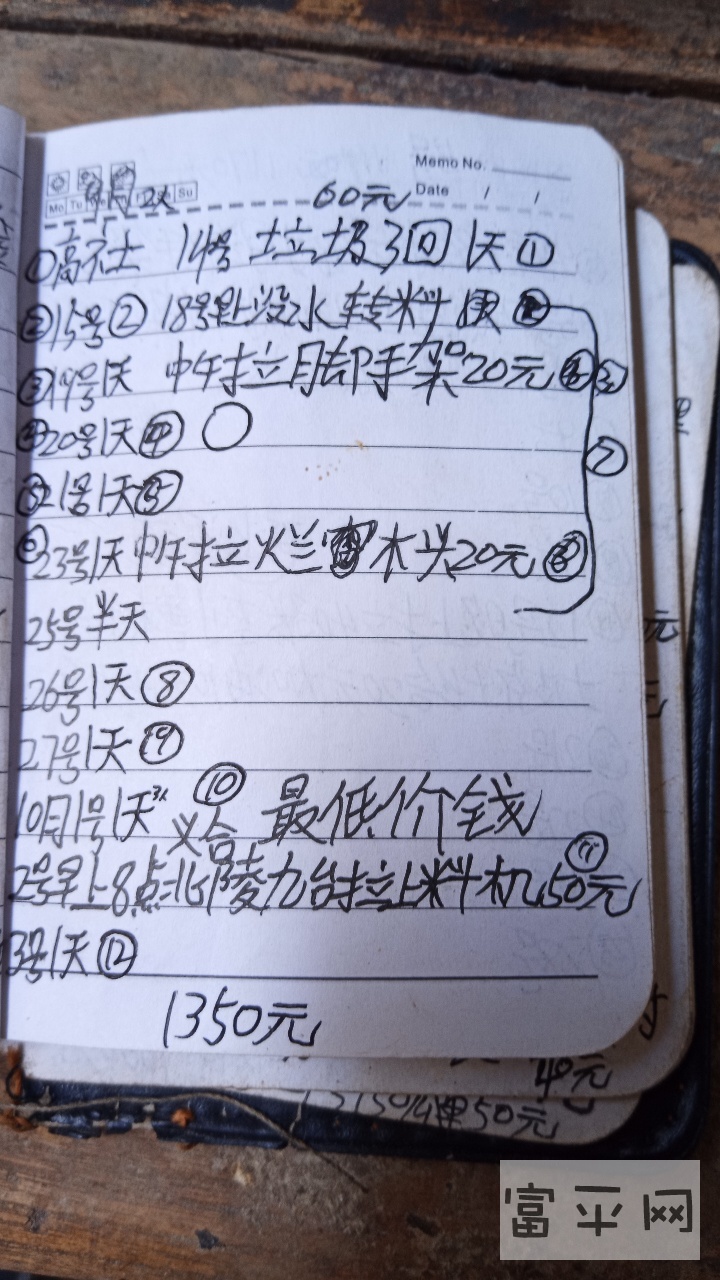 Memo No.
Date / /
Mo Tu Su
60元
①高社 14号 垃圾3回 1天①
②15号② 18号 没水 转料
③19号1天 中午拉脚手架20元 ③
④20号1天④
⑤21号1天⑤ ⑦
⑥23号1天中午拉烂 木头20元⑥
25号半天
26号1天⑧
27号1天⑨
10月1号1天 ⑩ 最低价钱
2号早上8点北陵九台拉上料机50元 ⑪
3号1天⑫
1350元
元
40元
50元
富平网